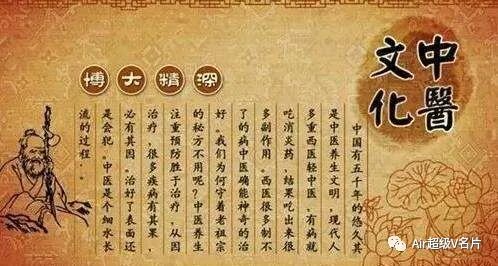 中醫
文化
博大精深
中国有五千年的悠久其
是中医养生文明，现代人
多重西医轻中医，有病就
吃消炎药，结果吃出来很
多副作用。西医很多制不
了的病中医确能神奇的治
好。我们为何守着老祖宗
的秘方不用呢？中医养生
注重预防胜于治疗，从因
治疗，很多疾病有其果，
必有其因。治好了表面还
是会犯。中医是个细水长
流的过程。
Air超级V名片